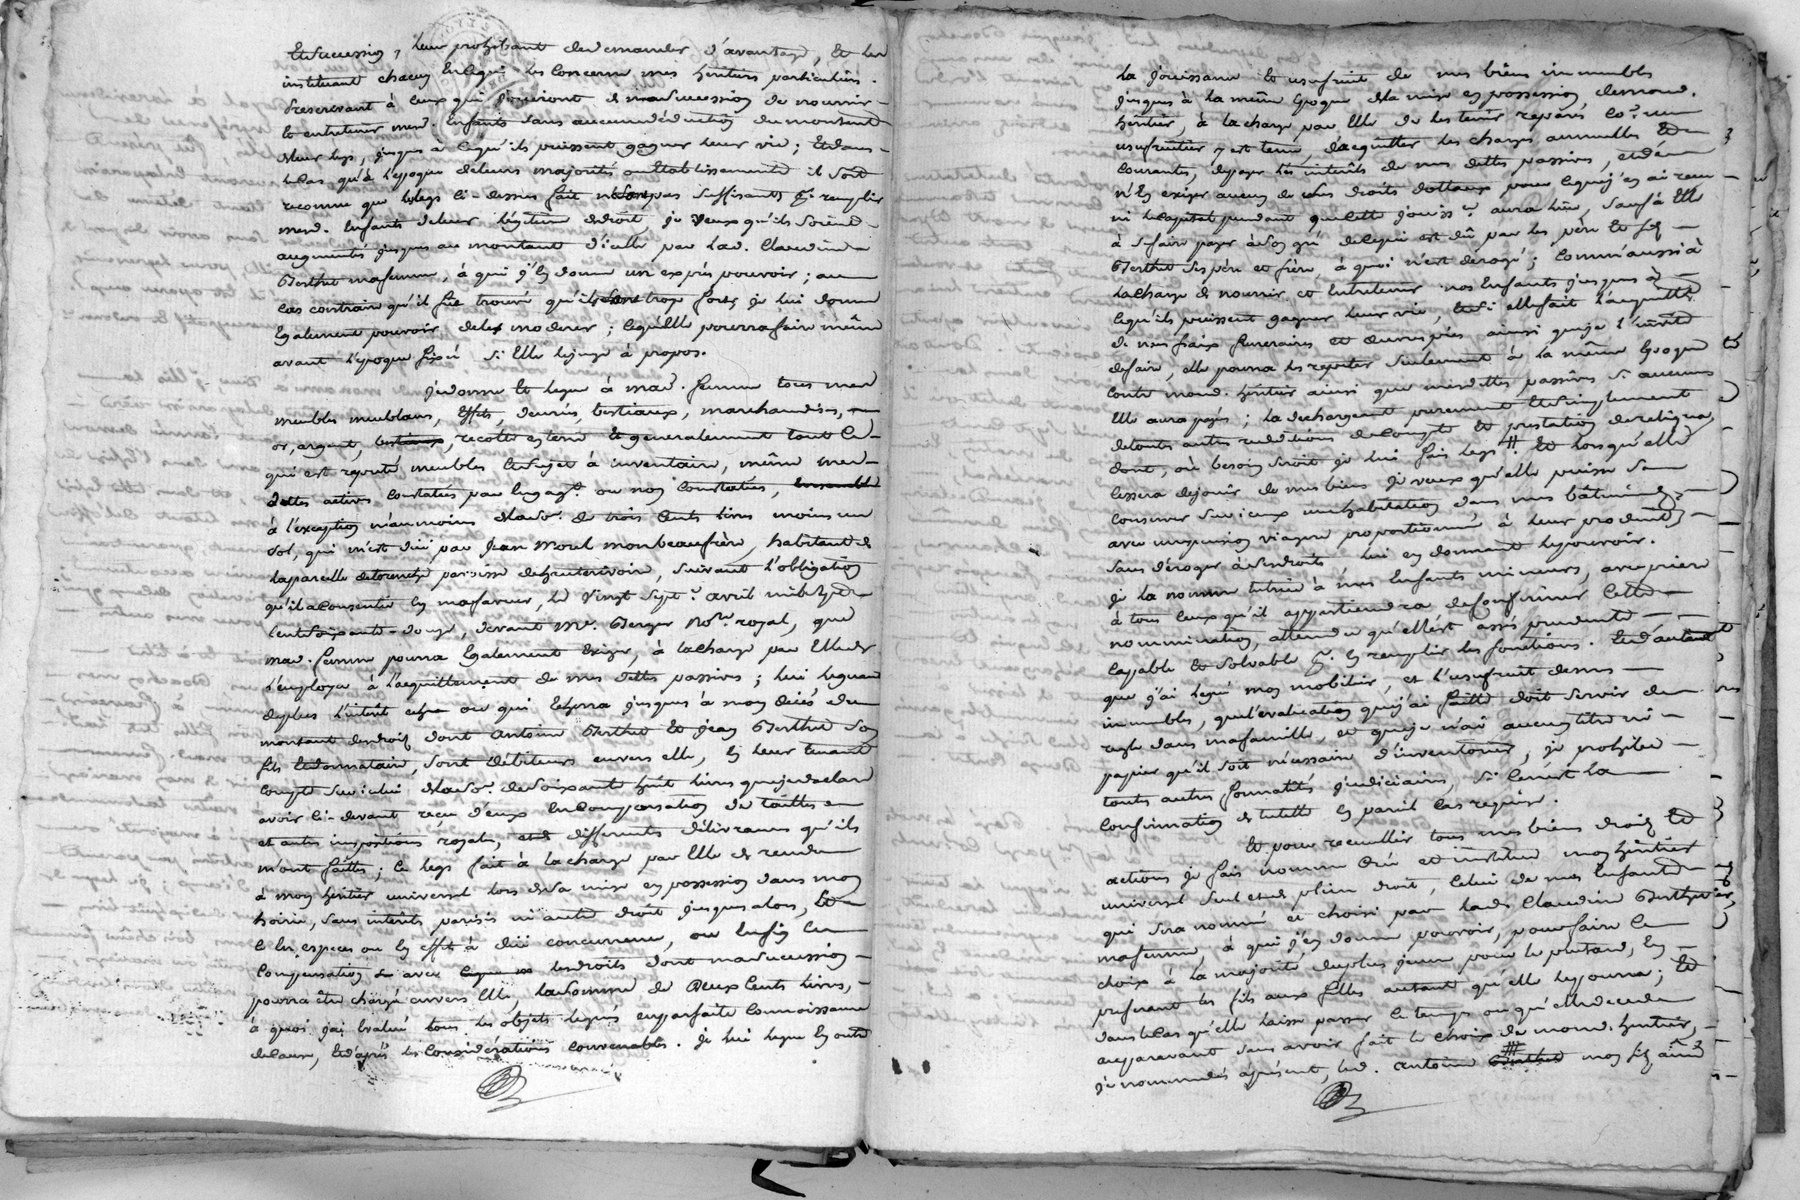 Et succession, leur prohibant de demander d'avantage, Et les
instituant chacun En ce qui les Concerne mes héritiers particuliers.
Prescrivant à ceux qui jouiront de ma succession de nourrir
Et entretenir mesd. Enfants sans aucune déduction du montant
de leur legs, jusques à ce qu'ils puissent gagner leur vie; Et dans
le cas qu'à l'époque de leurs majorités ou établissements il soit
reconnu que le legs ci-dessus fait ne soit pas suffisants pr. remplir
mesd. Enfants de leur légitime de droit, je veux qu'ils soient
augmentés jusques au montant d'icelle par lad. Claudine
Berthet ma femme, à qui j'En donne un exprès pouvoir; au
cas contraire qu'il fut trouvé qu'ils sont trop forts je lui donne
Egalement pouvoir de les modérer; ce qu'Elle pourra faire même
avant l'époque fixée si Elle le juge à propos.
Je donne Et legue à mad. femme tous mes
meubles meublans, Effets, denrées, bestiaux, marchandises,
or, argent, bestiaux, recolte en terre Et generalement tout ce
qui est reputé meubles Et sujet à inventaire, même mes
dettes actives constatées par Engagt. ou non constatées,
à l'exception néanmoins de la so. de trois Cents livres moins un
sol, qui m'est düe par Jean Morel mon beaufrère, habitant de
la parcelle de paroisse de hauterivoire, suivant l'obligation
qu'il a Consentie En ma faveur, Le vingt Sept avril mil sept
Cent soixante-douze, devant Me. Berger Nore. royal, que
mad. femme pourra Egalement Exiger, à la charge par Elle de
l'employer à l'acquittement de mes dettes passives; lui leguant
de plus l'intérêt échu ou qui Echerra jusques à mon décès du
montant des droits dont Antoine Berthet Et Jean Berthet son
fils Et donnataire, sont débiteurs envers elle, En leur tenant
compte sur icelui de la so. de soixante huit livres que je déclare
avoir ci-devant reçu d'eux En Compensation de tailles
et autres impositions royales, différentes délivrances qu'ils
m'ont faittes; Ce legs fait à la charge par Elle de rendre
à mon héritier universel lors de sa mise en possession dans mon
hoirie, sans intérêts, parisis ni autre droit jusques alors, Et
ce En espèces ou En effets à düe concurrence, ou Enfin En
Compensation avec les droits dont ma succession
pourra être chargé envers Elle, la somme de Deux Cents livres,
à quoi j'ai Evalué tous les objets legués en parfaite Connoissance
de cause, Et d'après les considérations convenables. je lui legue En outre
La jouissance Et usufruit de mes biens immeubles
jusques à la même Epoque de la mise en possession de mond.
héritier, à la charge par Elle de les tenir reparés co. un
usufruitier y est tenu, d'acquitter les charges annuelles Et
Courantes, de payer les intérêts de mes dettes passives, et de
n'En exiger aucun de ses droits dottaux pour ce que j'en ai reçu
ni le capital pendant que cette jouisse. aura lieu, Sauf à Elle
à se faire payer à son gré de ce qui est dû par les père Et fils
Berthet ses père et frère, à quoi n'est dérogé; Comm'aussi à
la charge de nourrir et Entretenir nos Enfants jusques à
ce qu'ils puissent gagner leur vie, Et si elle fait l'acquitt.
de mes fraix funeraires et oeuvres pies ainsi que je l'invite
de faire, elle pourra les repeter seulement à la même Epoque
contre mond. héritier ainsi que mes dettes passives si aucunes
Elle aura payés; la dechargeant purement Et simplement
de toutes autres redditions de Compte Et prestation de reliqua,
dont, où besoin seroit je lui fais legs. Et lorsqu'elle
cessera de jouir de mes biens je veux qu'elle puisse se
conserver sur iceux une habitation dans mes bâtiments
avec une pension viagere proportionnée à leur produit,
sans déroger à ses droits lui en donnant le pouvoir.
je la nomme tutrice à mes Enfants mineurs, avec prière
à tous ceux qu'il appartiendra de Confirmer Cette
nomination, attendu qu'elle est assés prudente
capable Et solvable pr. En remplir les fonctions. Et d'autant
que j'ai legué mon mobilier, et l'usufruit de mes
immeubles, que l'evaluation que j'ai faitte doit servir de
regle dans ma famille, et que je n'ai aucun titre ni
papier qu'il soit nécessaire d'inventorier, je prohibe
toutes autres formalités judiciaires, si ce n'est la
confirmation de tutelle En pareil cas requise.
Et pour recueillir tous mes biens droits Et
actions je fais nomme Crée et institue mon héritier
universel seul et de plein droit, Celui de mes Enfants
qui sera nommé et choisi par lade. Claudine Berthet
ma femme, à qui j'En donne pouvoir, pour faire Ce
choix à la majorité du plus jeune pour le plutard, En
preferant les fils aux filles autant qu'elle le pourra; Et
dans le cas qu'elle laisse passer ce temps ou qu'elle decede
auparavant sans avoir fait le choix de mond. héritier,
je nomme dès à présent, led. Antoine mon fils ainé